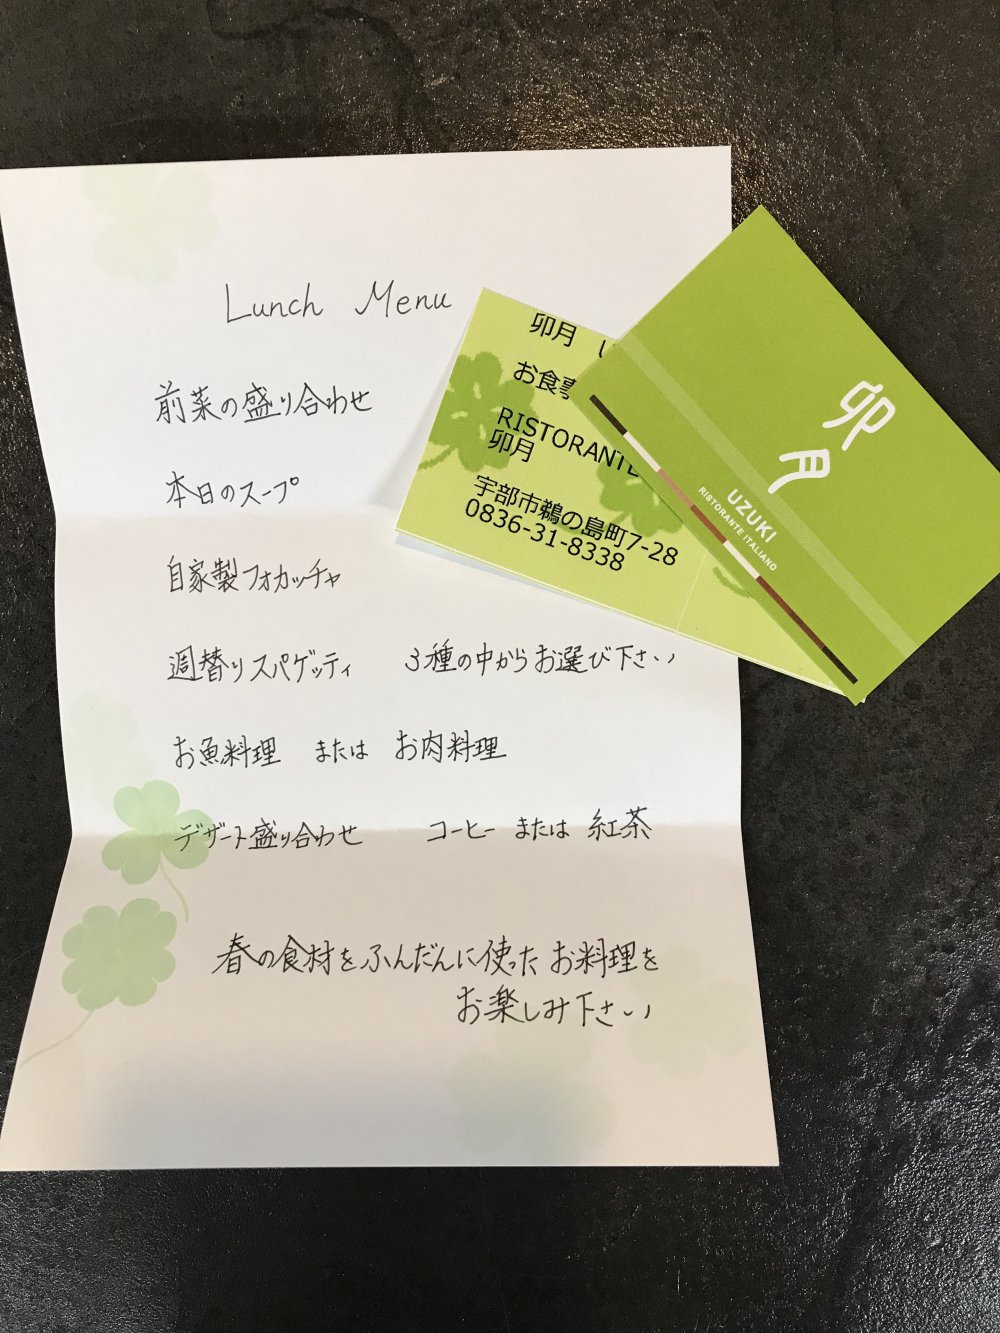 Lunch Menu
前菜の盛り合わせ
本日のスープ
自家製フォカッチャ
週替りスパゲッティ 3種の中からお選び下さい
お魚料理 または お肉料理
デザート盛り合わせ コーヒー または 紅茶
春の食材をふんだんに使ったお料理を
お楽しみ下さい
卯月
お食事
RISTORANTE
卯月
宇部市鵜の島町7-28
0836-31-8338
卯月
UZUKI
RISTORANTE ITALIANO